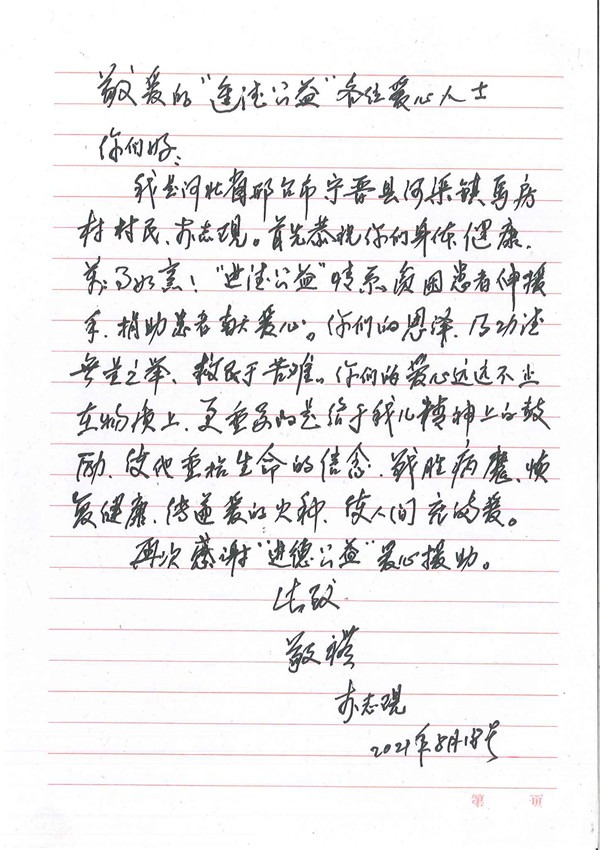 敬爱的“进德公益”各位爱心人士
你们好：
我是河北省邢台市宁晋县河渠镇马房
村村民、苏志现。首先恭祝你们身体健康、
万事如意！“进德公益”情系贫困患者伸援
手、捐助患者献爱心。你们的恩泽、乃功德
无量之举、救民于苦难。你们的爱心远远不止
在物质上、更重要的是给于我儿精神上的鼓
励、使他重拾生命的信念、战胜病魔、恢
复健康、传递爱的火种、使人间充满爱。
再次感谢“进德公益”爱心援助。
此致
敬礼
苏志现
2021年8月18号
第 页